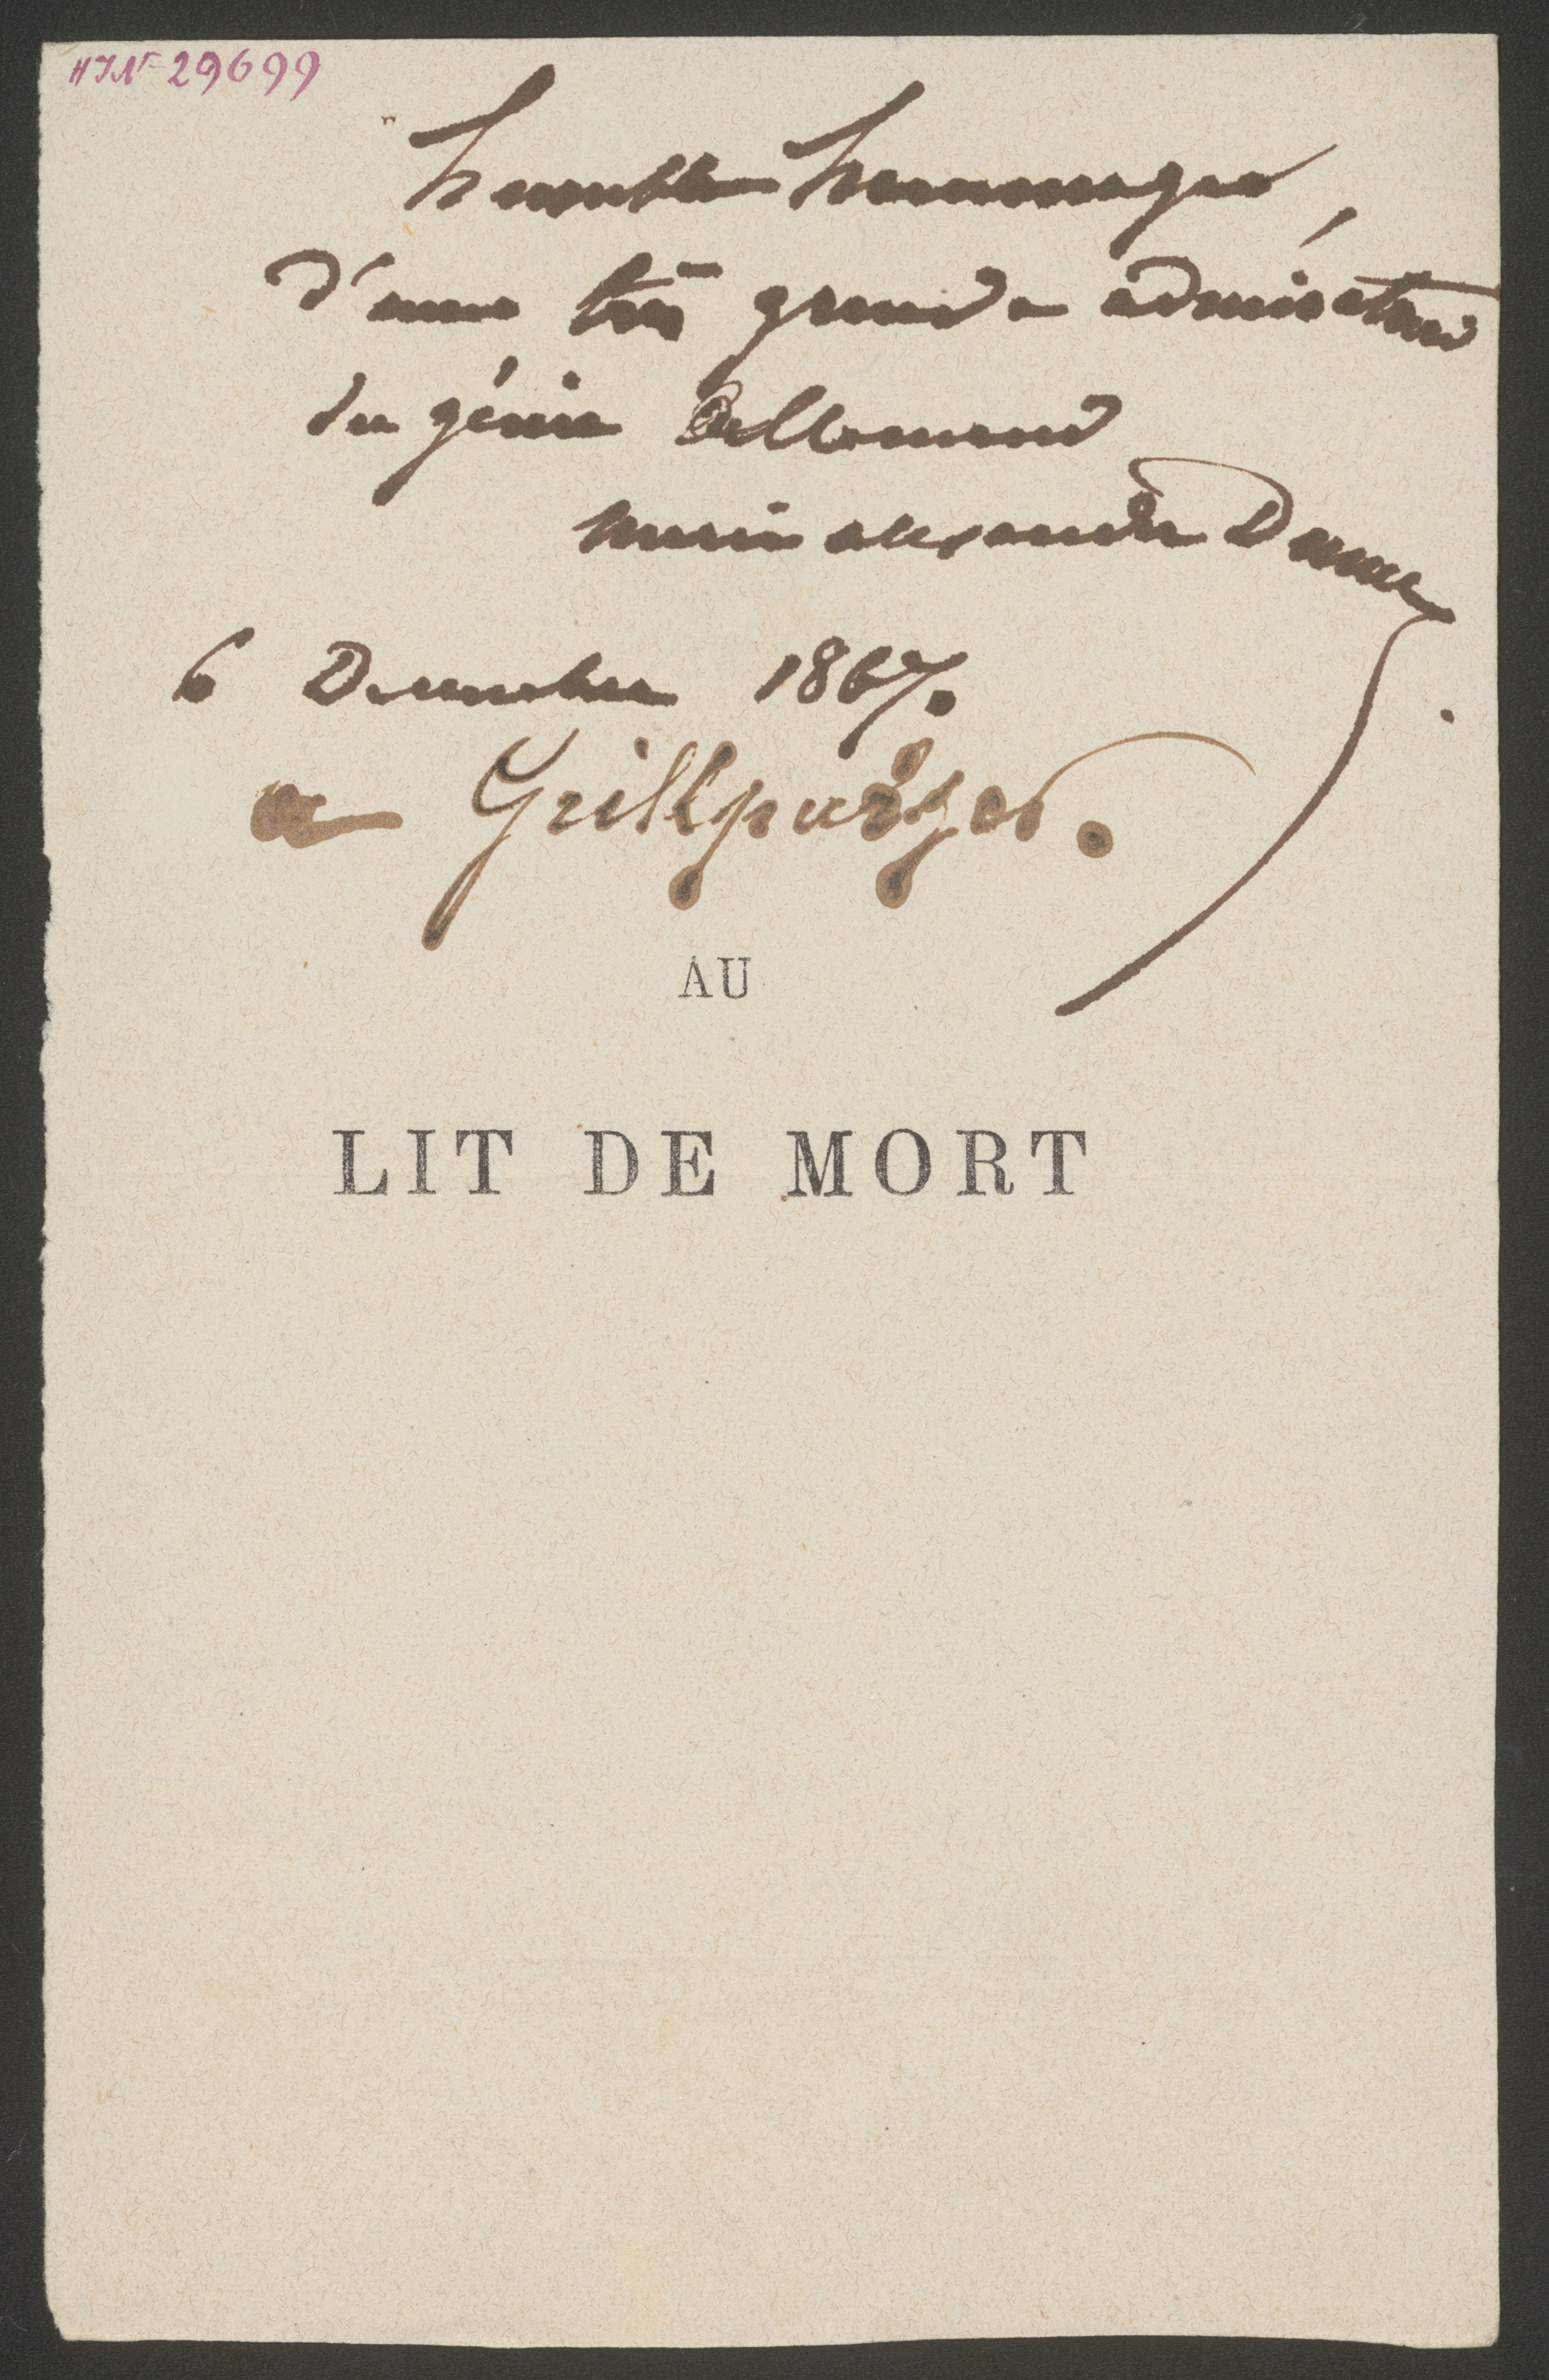 HIN-29699
humble hommage
d'une très grande admiration
du génie allemand
Marie Alexandre Dumas
6 Decembre 1867.
a Grillparzer.
AU
LIT DE MORT